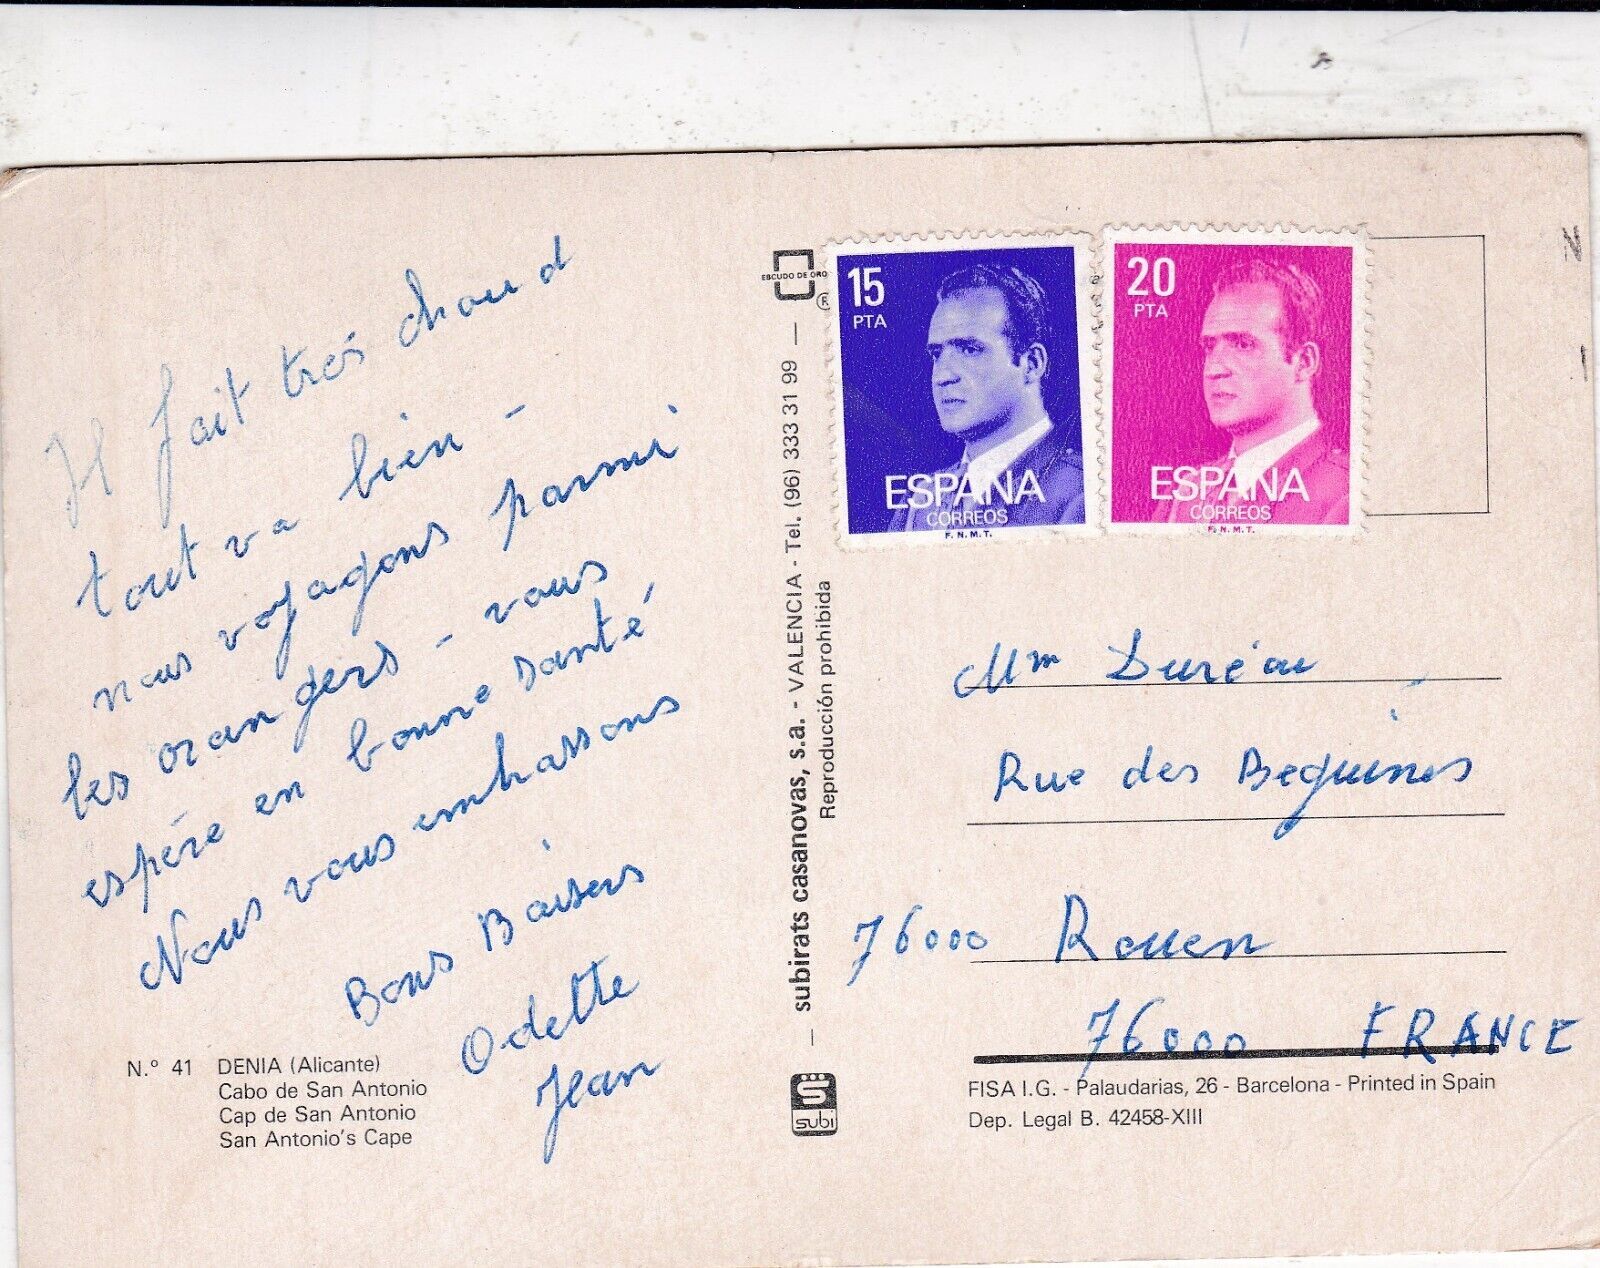 Il fait très chaud
tout va bien -
nous voyageons parmi
les orangers - vous
espére en bonne santé
Nous vous embrassons
Bons Baisers
Odette
Jean
N.º 41 DENIA (Alicante)
Cabo de San Antonio
Cap de San Antonio
San Antonio's Cape
ESCUDO DE ORO
®
— subirats casanovas, s.a. - VALENCIA - Tel. (96) 333 31 99 —
Reproducción prohibida
subi
15
PTA
ESPAÑA
CORREOS
F.N.M.T.
20
PTA
ESPAÑA
CORREOS
F.N.M.T.
N
Mm Duréau
Rue des Beguines
76000 Rouen
76000 FRANCE
FISA I.G. - Palaudarias, 26 - Barcelona - Printed in Spain
Dep. Legal B. 42458-XIII